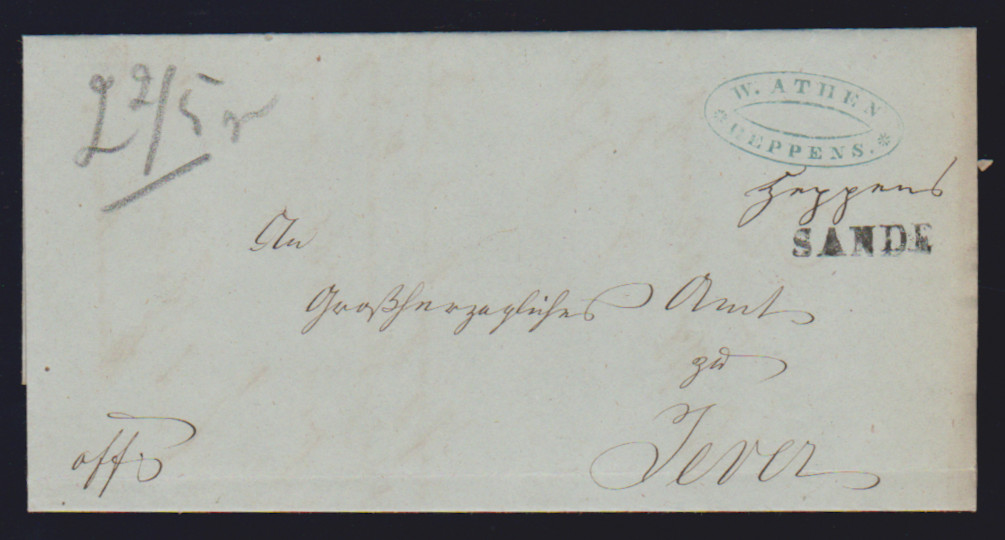 2 2/5 gr
W. ATHEN
HEPPENS.
Heppens
SANDE
An
Großherzogliches Amt
zu
Jever
offs